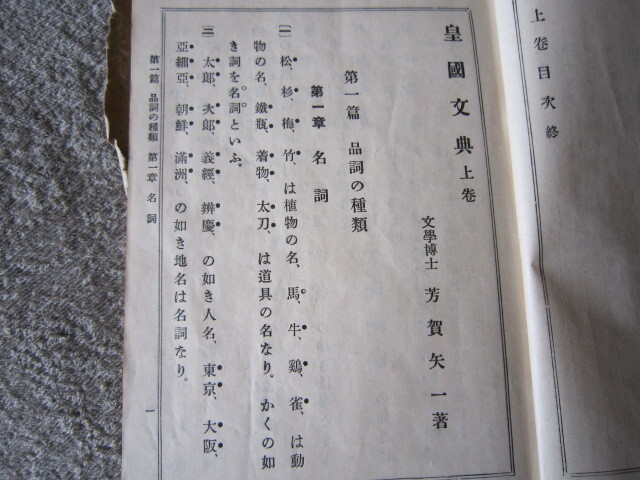 上卷目次終
皇國文典上卷
文學博士 芳賀矢一著
第一篇 品詞の種類
第一章 名詞
(一) 松、杉、梅、竹、は植物の名、馬、牛、鷄、雀、は動
物の名、鐵瓶、着物、太刀、は道具の名なり。かくの如
き詞を名詞といふ。
(二) 太郎、次郎、義經、辨慶、の如き人名、東京、大阪、
亞細亞、朝鮮、滿洲、の如き地名は名詞なり。
第一篇 品詞の種類 第一章 名詞
一